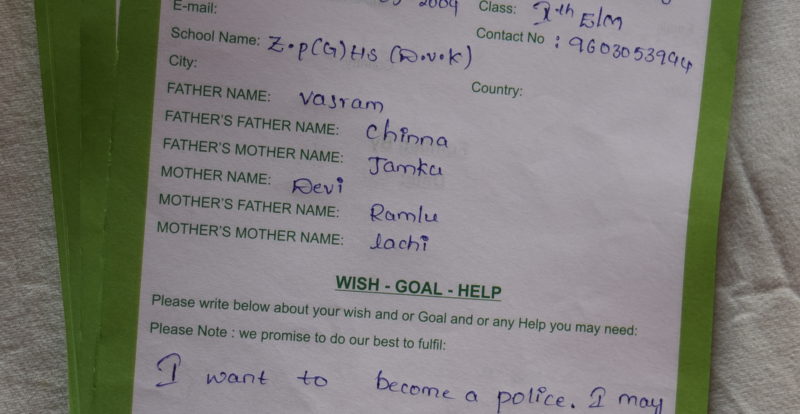 E-mail: 2009 Class: Xth E/M
School Name: Z.P(G)HS (D.V.K) Contact No : 9603053994
City: Country:
FATHER NAME: Vasram
FATHER'S FATHER NAME: Chinna
FATHER'S MOTHER NAME: Jamku
MOTHER NAME: Devi
MOTHER'S FATHER NAME: Ramlu
MOTHER'S MOTHER NAME: lachi
WISH - GOAL - HELP
Please write below about your wish and or Goal and or any Help you may need:
Please Note : we promise to do our best to fulfil:
I want to become a police. I may